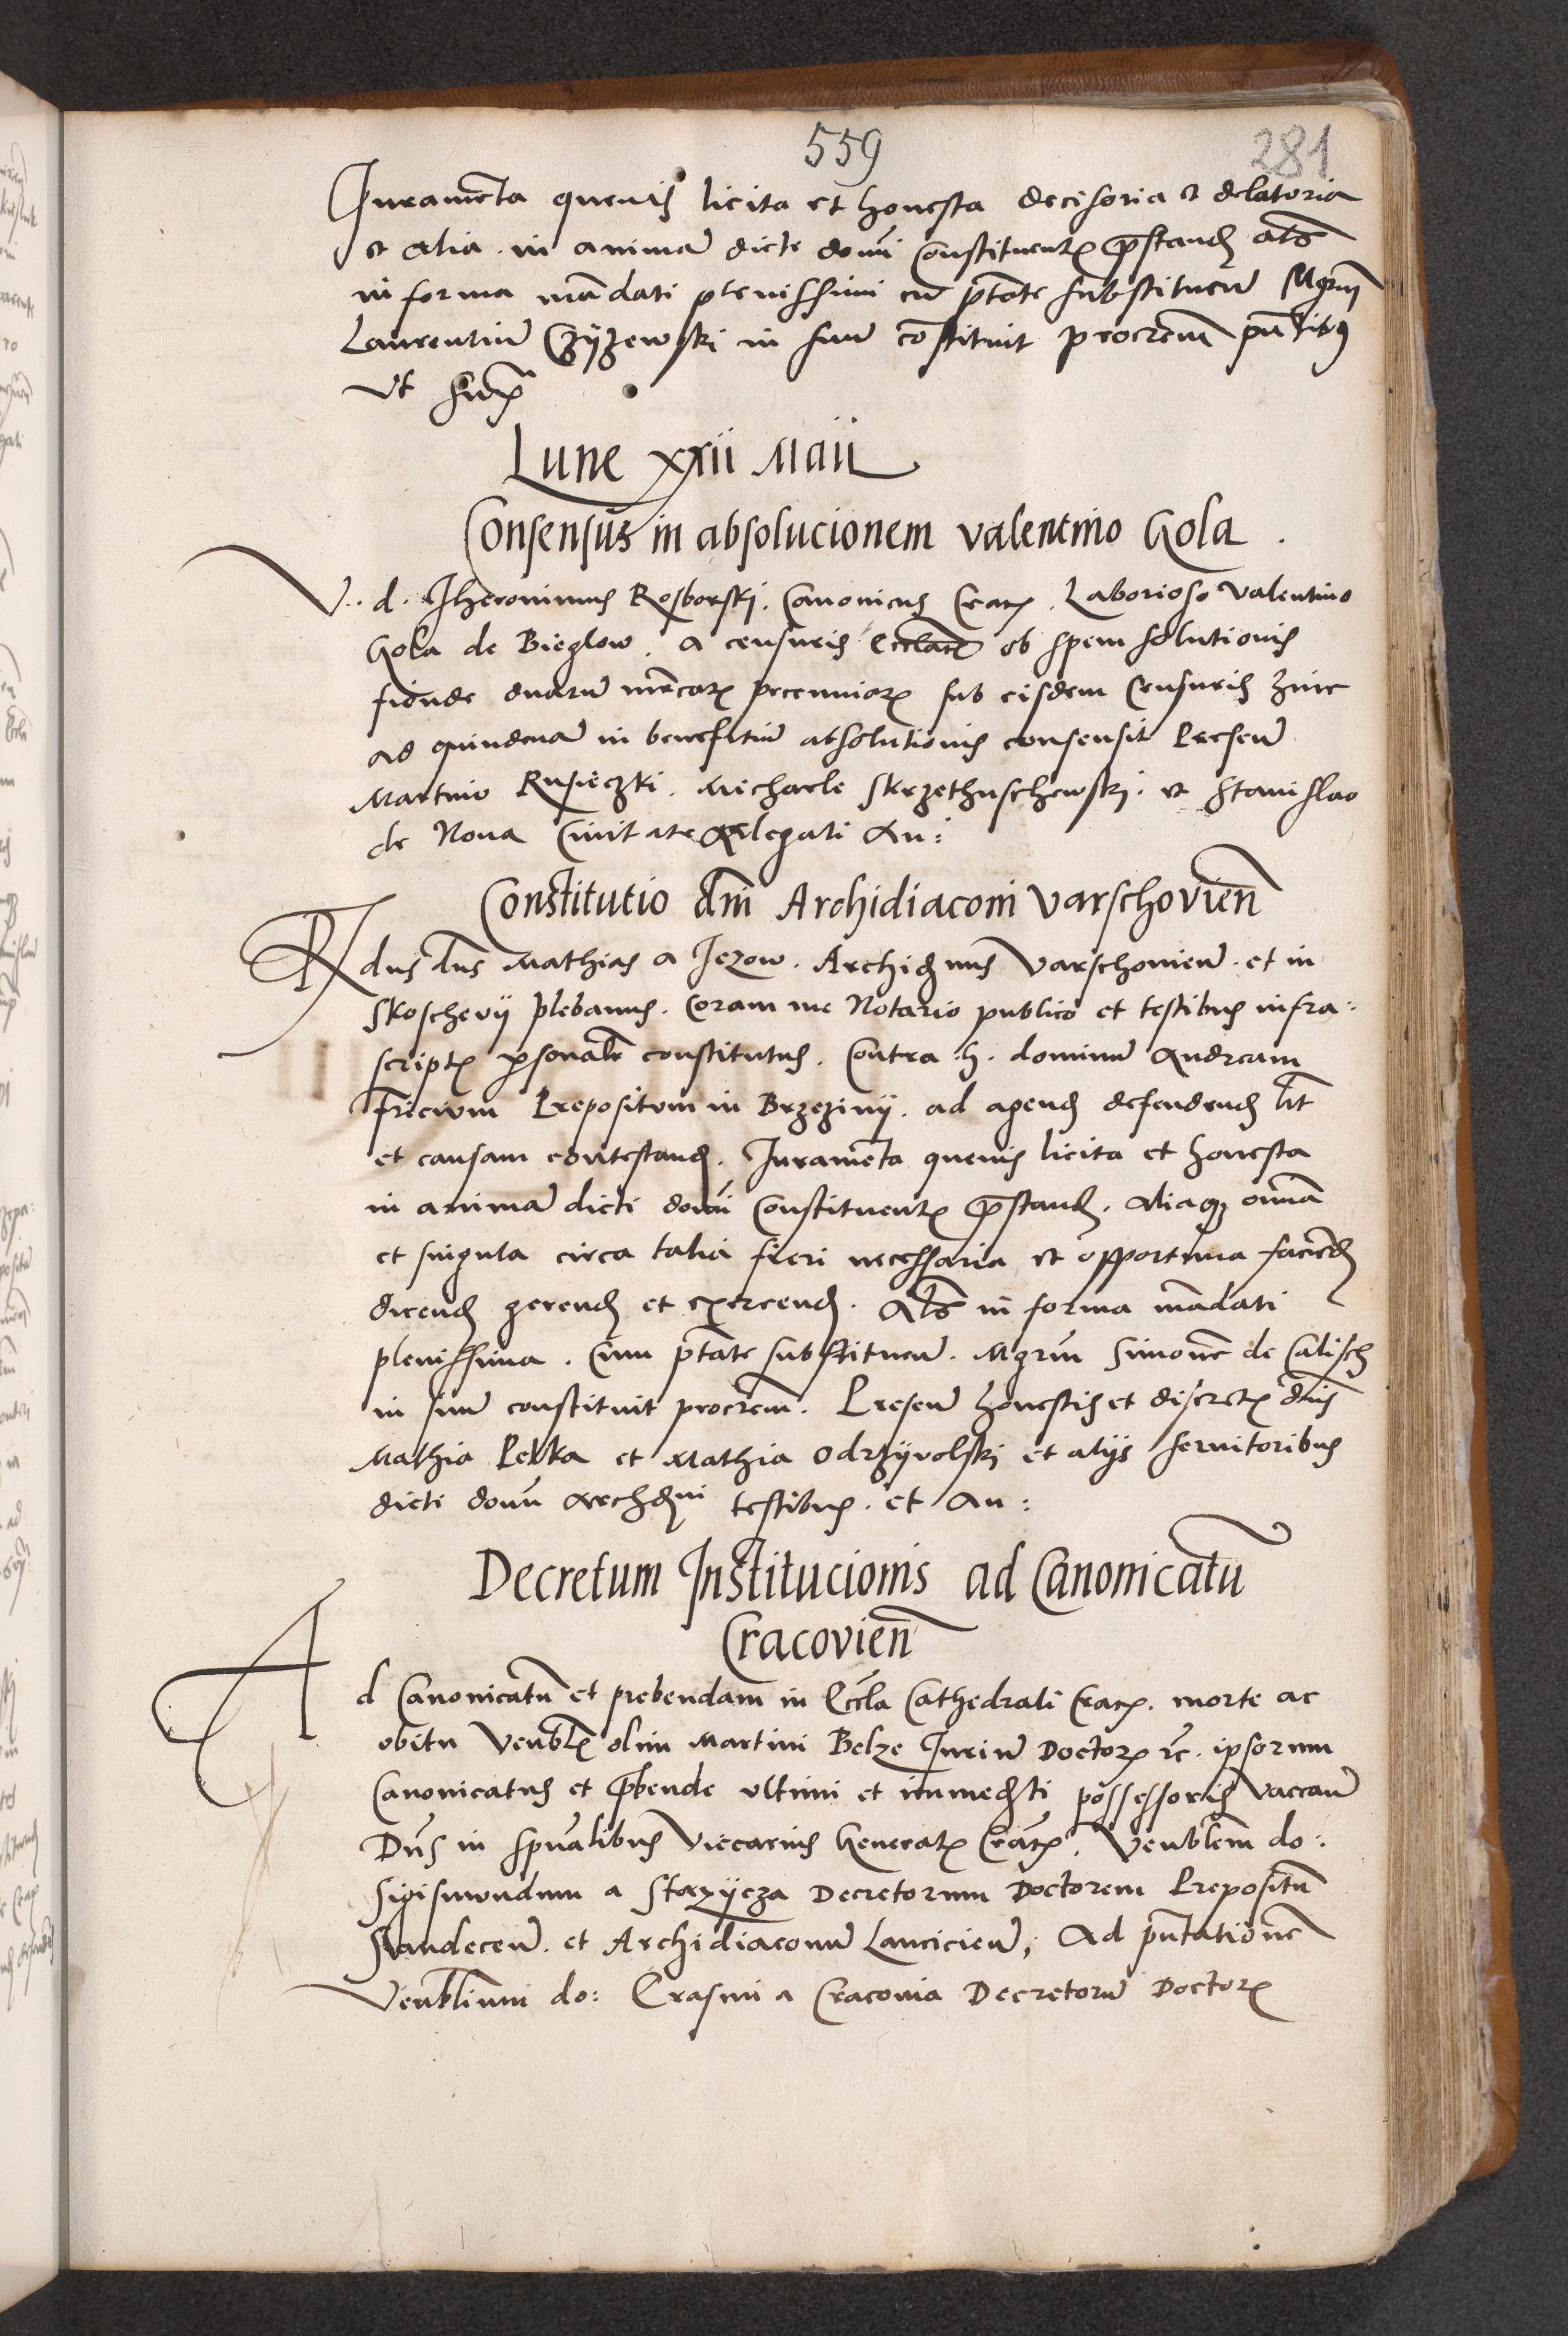 559
281
Juramenta quevis licita et honesta decisoria et delatoria
et alia in animã dicte domi Constituentis prestand als
in forma mãdati plenissimi cũ ptate substituen Mgrm
Laurentiũ Czyżewski in suũ cõstituit procrem pntibus
Vt supra
Lune xxii Maii
Consensus in absolucionem valentino Gola
V. d. Jheronimus Rosborski. Canonicus Crac. Laborioso Valentino
Gola de Bieglow. a censuris Ecclasticis ob spem solutionis
fiende duarũ mrcarum pecuniarum sub eisdem Censuris hinc
ad quindenã in benefitiũ absolutionis consensit Presen
Martino Rusieczki. Michaele Skrzethuschewski. et Stanislao
de Nova Civitate Allegati An:
Constitutio dni Archidiaconi Varschovien
Rdus dns Mathias a Jezow. Archidnus Varschovien. et in
Skoschevy plebanus. Coram me Notario publico et testibus infra:
scriptis personalr constitutus. Contra. h. dominũ Andream
fricium Prepositum in Brzeziny. ad agend defendend lit
et causam contestand. Juramenta quevis licita et honesta
in animã dicti domi Constituentis prestand. aliaque omnia
et singula circa talia fieri necessaria et opportuna faciend
dicend gerend et exercend. Als in forma mãdati
plenissima. Cum ptate substituen. Mgrum Simonẽ de Calisch
in suũ constituit procrem. Presen honestis et discretis dnis
Mathia Pekka et Mathia Odrzyvolski et alijs servitoribus
dicti domi Archidni testibus. et An:
Decretum Institucionis ad Canonicatũ
Cracovien
Ad Canonicatũ et prebendam in Eccla Cathedrali Crac. morte ac
obitu Venblis olim Martini Belze Juriũ Doctoris etc. ipsorum
Canonicatus et prebende ultimi et immedti possessoris Vaccan
Dns in spualibus Viccarius Generalis Crac. Venblem do:
Sigismundum a Stazycza Decretorum Doctorem Prepositũ
Sandecen. et Archidiaconũ Lancicien, Ad pntationẽ
Venblium do: Erasmi a Cracovia Decretorũ Doctoris